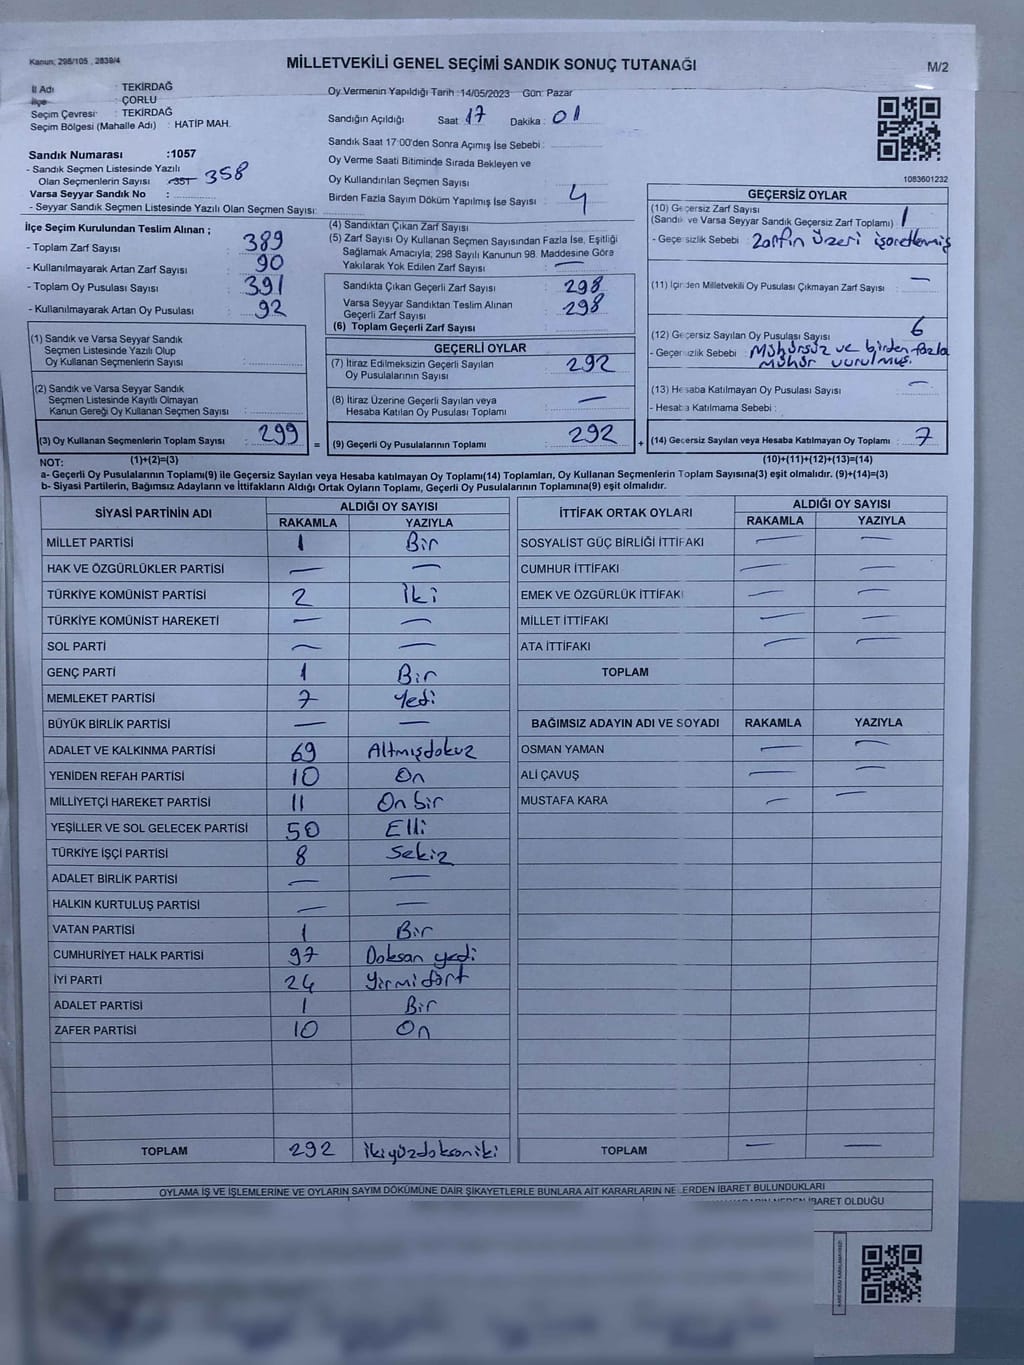 Kanun; 298/105 , 2839/4
MİLLETVEKİLİ GENEL SEÇİMİ SANDIK SONUÇ TUTANAĞI
M/2
İl Adı : TEKİRDAĞ
İlçe : ÇORLU
Seçim Çevresi : TEKİRDAĞ
Seçim Bölgesi (Mahalle Adı) : HATİP MAH.
Oy Vermenin Yapıldığı Tarih :14/05/2023 Gün: Pazar
Sandığın Açıldığı Saat : 17 Dakika : 01
Sandık Saat 17:00'den Sonra Açımış İse Sebebi :
Oy Verme Saati Bitiminde Sırada Bekleyen ve
Oy Kullandırılan Seçmen Sayısı
Birden Fazla Sayım Döküm Yapılmış İse Sayısı : 4
1083601232
Sandık Numarası :1057
- Sandık Seçmen Listesinde Yazılı
Olan Seçmenlerin Sayısı : 351 358
Varsa Seyyar Sandık No :
- Seyyar Sandık Seçmen Listesinde Yazılı Olan Seçmen Sayısı:
İlçe Seçim Kurulundan Teslim Alınan ;
- Toplam Zarf Sayısı : 389
- Kullanılmayarak Artan Zarf Sayısı : 90
- Toplam Oy Pusulası Sayısı : 391
- Kullanılmayarak Artan Oy Pusulası : 92
(1) Sandık ve Varsa Seyyar Sandık
Seçmen Listesinde Yazılı Olup
Oy Kullanan Seçmenlerin Sayısı :
(2) Sandık ve Varsa Seyyar Sandık
Seçmen Listesinde Kayıtlı Olmayan
Kanun Gereği Oy Kullanan Seçmen Sayısı :
(3) Oy Kullanan Seçmenlerin Toplam Sayısı : 299
(1)+(2)=(3)
(4) Sandıktan Çıkan Zarf Sayısı :
(5) Zarf Sayısı Oy Kullanan Seçmen Sayısından Fazla İse, Eşitliği
Sağlamak Amacıyla; 298 Sayılı Kanunun 98. Maddesine Göre
Yakılarak Yok Edilen Zarf Sayısı : —
Sandıkta Çıkan Geçerli Zarf Sayısı : 298
Varsa Seyyar Sandıktan Teslim Alınan
Geçerli Zarf Sayısı : 298
(6) Toplam Geçerli Zarf Sayısı :
GEÇERLİ OYLAR
(7) İtiraz Edilmeksizin Geçerli Sayılan
Oy Pusulalarının Sayısı : 292
(8) İtiraz Üzerine Geçerli Sayılan veya
Hesaba Katılan Oy Pusulası Toplamı : —
= (9) Geçerli Oy Pusulalarının Toplamı : 292
GEÇERSİZ OYLAR
(10) Geçersiz Zarf Sayısı
(Sandık ve Varsa Seyyar Sandık Geçersiz Zarf Toplamı) : 1
- Geçersizlik Sebebi : Zarfın üzeri işaretlenmiş
(11) İçinden Milletvekili Oy Pusulası Çıkmayan Zarf Sayısı : —
(12) Geçersiz Sayılan Oy Pusulası Sayısı : 6
- Geçersizlik Sebebi : Mühürsüz ve birden fazla
mühür vurulmuş.
(13) Hesaba Katılmayan Oy Pusulası Sayısı : —
- Hesaba Katılmama Sebebi :
+ (14) Geçersiz Sayılan veya Hesaba Katılmayan Oy Toplamı : 7
(10)+(11)+(12)+(13)=(14)
NOT:
a- Geçerli Oy Pusulalarının Toplamı(9) ile Geçersiz Sayılan veya Hesaba katılmayan Oy Toplamı(14) Toplamları, Oy Kullanan Seçmenlerin Toplam Sayısına(3) eşit olmalıdır. (9)+(14)=(3)
b- Siyasi Partilerin, Bağımsız Adayların ve İttifakların Aldığı Ortak Oyların Toplamı, Geçerli Oy Pusulalarının Toplamına(9) eşit olmalıdır.
SİYASİ PARTİNİN ADI ALDIĞI OY SAYISI
RAKAMLA YAZIYLA
MİLLET PARTİSİ 1 Bir
HAK VE ÖZGÜRLÜKLER PARTİSİ — —
TÜRKİYE KOMÜNİST PARTİSİ 2 İki
TÜRKİYE KOMÜNİST HAREKETİ — —
SOL PARTİ — —
GENÇ PARTİ 1 Bir
MEMLEKET PARTİSİ 7 Yedi
BÜYÜK BİRLİK PARTİSİ — —
ADALET VE KALKINMA PARTİSİ 69 Altmışdokuz
YENİDEN REFAH PARTİSİ 10 On
MİLLİYETÇİ HAREKET PARTİSİ 11 On bir
YEŞİLLER VE SOL GELECEK PARTİSİ 50 Elli
TÜRKİYE İŞÇİ PARTİSİ 8 Sekiz
ADALET BİRLİK PARTİSİ — —
HALKIN KURTULUŞ PARTİSİ — —
VATAN PARTİSİ 1 Bir
CUMHURİYET HALK PARTİSİ 97 Doksan yedi
İYİ PARTİ 24 Yirmi dört
ADALET PARTİSİ 1 Bir
ZAFER PARTİSİ 10 On
TOPLAM 292 ikiyüzdoksaniki
İTTİFAK ORTAK OYLARI ALDIĞI OY SAYISI
RAKAMLA YAZIYLA
SOSYALİST GÜÇ BİRLİĞİ İTTİFAKI — —
CUMHUR İTTİFAKI — —
EMEK VE ÖZGÜRLÜK İTTİFAKI — —
MİLLET İTTİFAKI — —
ATA İTTİFAKI — —
TOPLAM
BAĞIMSIZ ADAYIN ADI VE SOYADI RAKAMLA YAZIYLA
OSMAN YAMAN — —
ALİ ÇAVUŞ — —
MUSTAFA KARA — —
TOPLAM — —
OYLAMA İŞ VE İŞLEMLERİNE VE OYLARIN SAYIM DÖKÜMÜNE DAİR ŞİKAYETLERLE BUNLARA AİT KARARLARIN NELERDEN İBARET BULUNDUKLARI
NEDEN İBARET OLDUĞU